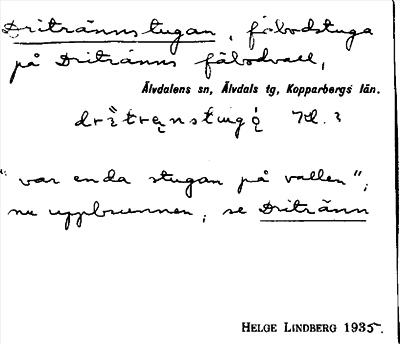 Dritrännstugan, fäbodstuga
på Dritränns fäbodvall,
Älvdalens sn, Älvdals tg, Kopparbergs län.
"var enda stugan på vallen",
nu uppbrunnen, se Dritränn
HELGE LINDBERG 1935.